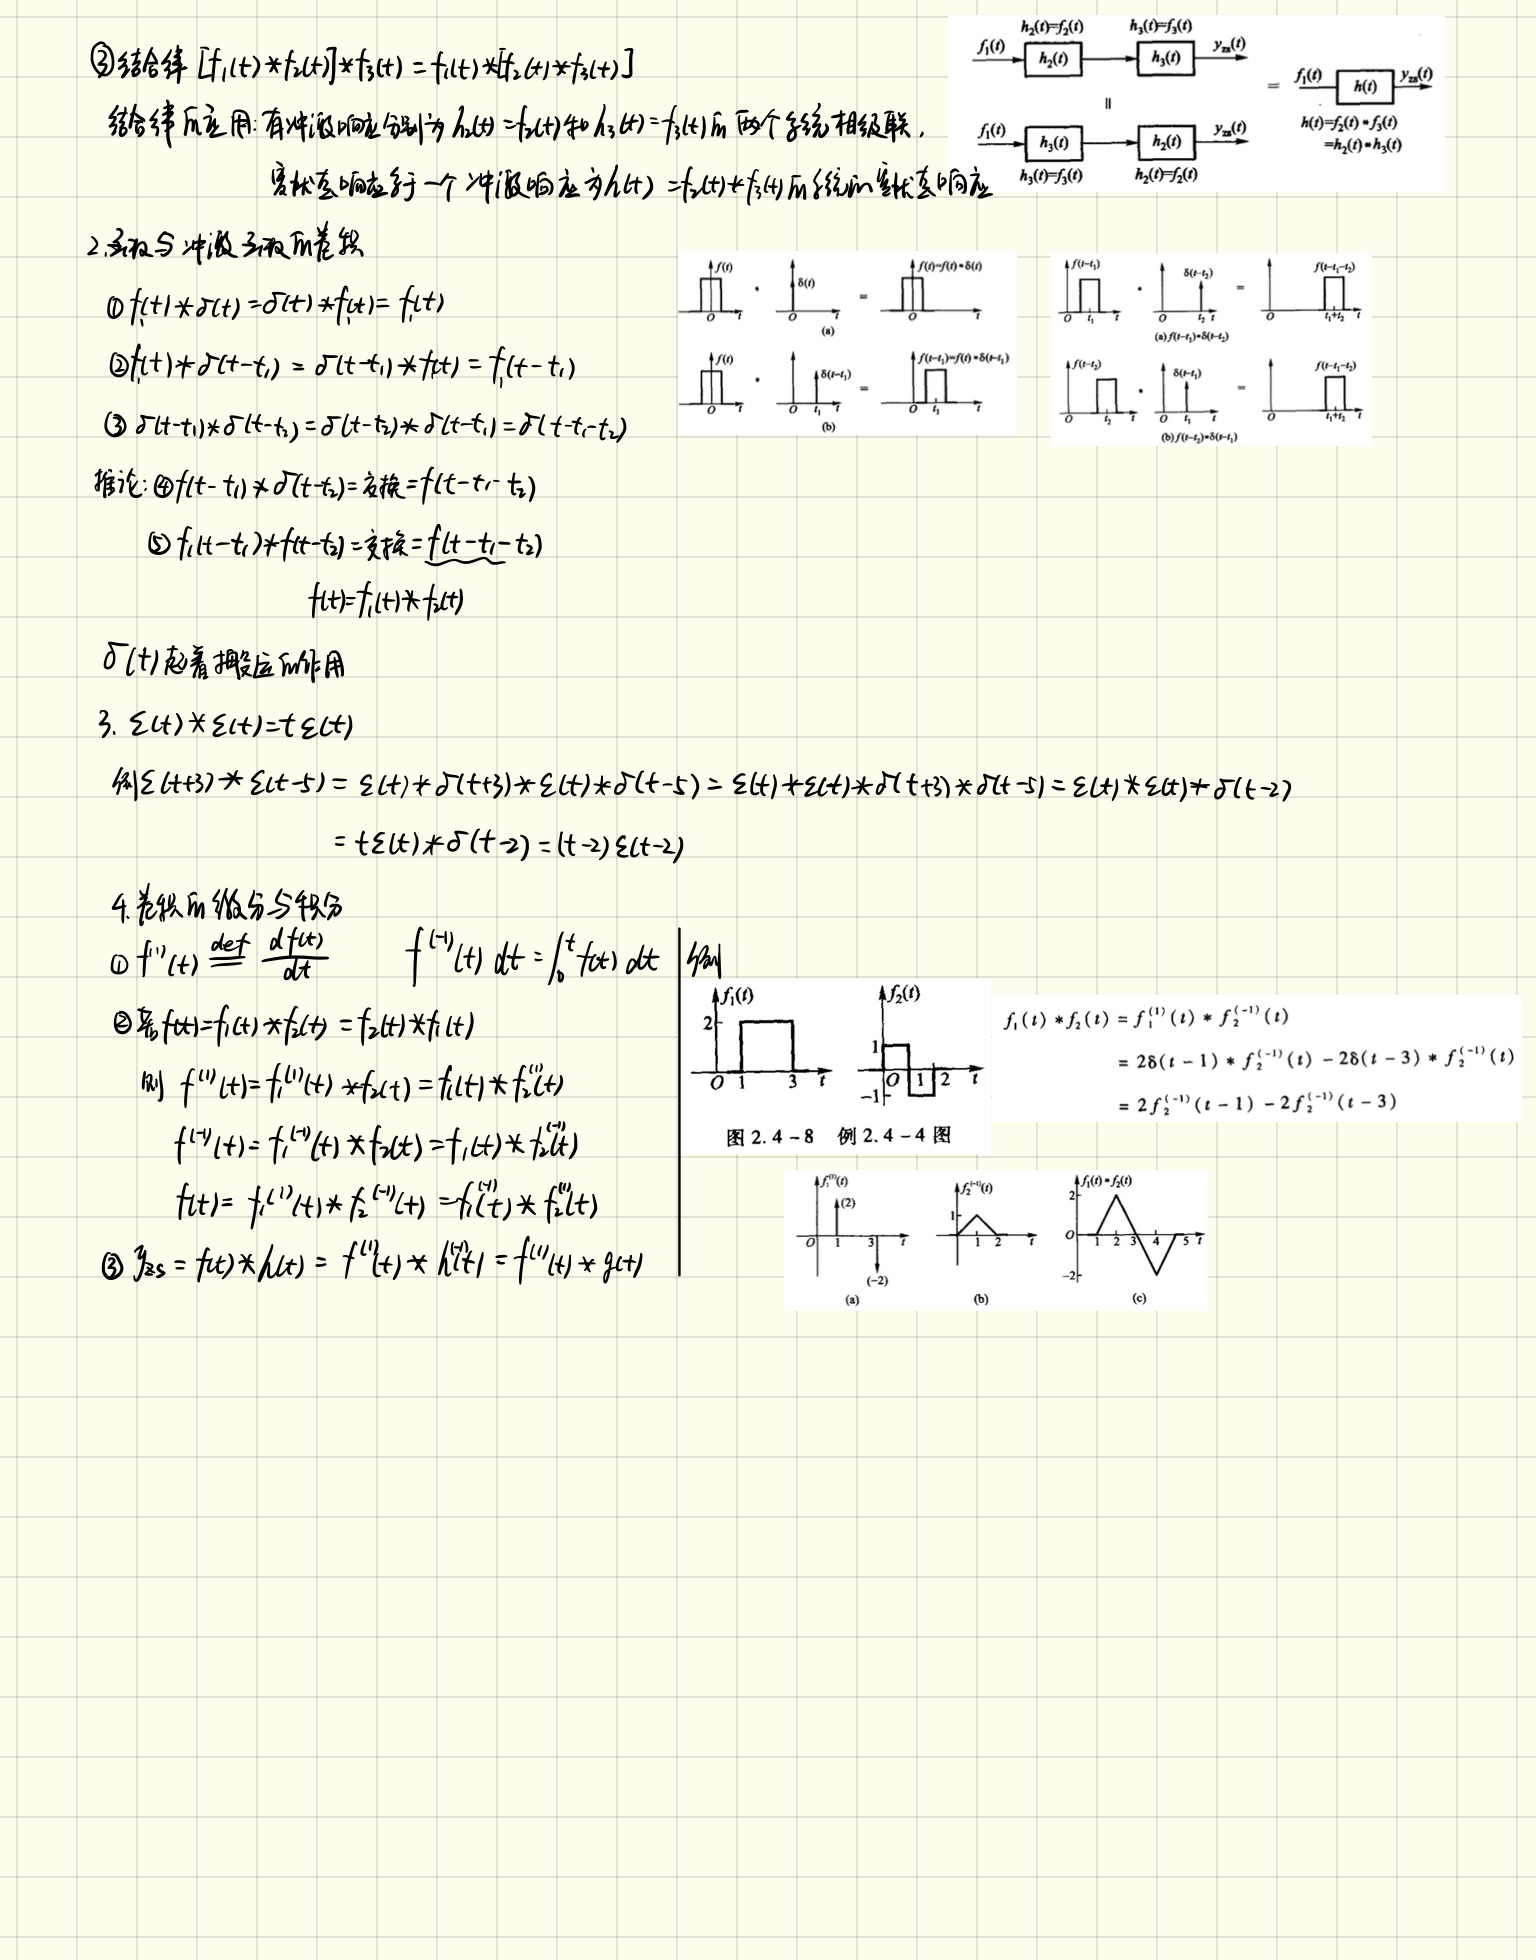 ③结合律 [f₁(t)*f₂(t)]*f₃(t) = f₁(t)*[f₂(t)*f₃(t)]
结合律的应用:有冲激响应分别为 h₂(t)=f₂(t)和h₃(t)=f₃(t)的两个系统相级联,
零状态响应等于一个冲激响应为h(t) =f₂(t)*f₃(t)的系统的零状态响应
h₂(t)=f₂(t) h₃(t)=f₃(t)
f₁(t) h₂(t) h₃(t) y_zs(t)
= f₁(t) h(t) y_zs(t)
॥
h(t)=f₂(t)*f₃(t)
=h₂(t)*h₃(t)
f₁(t) h₃(t) h₂(t) y_zs(t)
h₃(t)=f₃(t) h₂(t)=f₂(t)
2.函数与冲激函数的卷积
①f₁(t)*δ(t)=δ(t)*f₁(t)=f₁(t)
②f₁(t)*δ(t-t₁) = δ(t-t₁)*f(t) = f₁(t-t₁)
③ δ(t-t₁)*δ(t-t₂)=δ(t-t₂)*δ(t-t₁)=δ(t-t₁-t₂)
f(t) δ(t) = f(t)=f(t)*δ(t)
O t O t O t
(a)
f(t) δ(t-t₁) = f(t-t₁)=f(t)*δ(t-t₁)
O t O t₁ t O t₁ t
(b)
f(t-t₁) δ(t-t₂) = f(t-t₁-t₂)
O t₁ t O t₂ t O t₁+t₂ t
(a) f(t-t₁)*δ(t-t₂)
f(t-t₂) δ(t-t₁) = f(t-t₁-t₂)
O t₂ t O t₁ t O t₁+t₂ t
(b) f(t-t₂)*δ(t-t₁)
推论:④f(t-t₁)*δ(t-t₂)=交换=f(t-t₁-t₂)
⑤ f₁(t-t₁)*f(t-t₂)=交换=f(t-t₁-t₂)
f(t)=f₁(t)*f₂(t)
δ(t)起着搬运的作用
3. ε(t)*ε(t)=tε(t)
例ε(t+3)*ε(t-5) = ε(t)*δ(t+3)*ε(t)*δ(t-5) = ε(t)*ε(t)*δ(t+3)*δ(t-5)=ε(t)*ε(t)*δ(t-2)
= tε(t)*δ(t-2) = (t-2)ε(t-2)
4.卷积的微分与积分
① f⁽¹⁾(t) def= df(t)/dt f⁽⁻¹⁾(t) dt = ∫₀ᵗ f(t) dt
②若f(t)=f₁(t)*f₂(t) = f₂(t)*f₁(t)
则 f⁽¹⁾(t)=f₁⁽¹⁾(t)*f₂(t)=f₁(t)*f₂⁽¹⁾(t)
f⁽⁻¹⁾(t)=f₁⁽⁻¹⁾(t)*f₂(t)=f₁(t)*f₂⁽⁻¹⁾(t)
f(t)= f₁⁽¹⁾(t)*f₂⁽⁻¹⁾(t) =f₁⁽⁻¹⁾(t)*f₂⁽¹⁾(t)
③ y_zs = f(t)*h(t) = f⁽¹⁾(t)*h⁽⁻¹⁾(t) = f⁽¹⁾(t)*g(t)
例
f₁(t) f₂(t)
2 O 1 3 t
1 O 1 2 t -1
图 2.4-8 例 2.4-4 图
f₁(t)*f₂(t) = f₁⁽¹⁾(t)*f₂⁽⁻¹⁾(t)
= 2δ(t-1)*f₂⁽⁻¹⁾(t) - 2δ(t-3)*f₂⁽⁻¹⁾(t)
= 2f₂⁽⁻¹⁾(t-1) - 2f₂⁽⁻¹⁾(t-3)
f₁⁽¹⁾(t) (2) O 1 3 t (-2)
(a)
f₂⁽⁻¹⁾(t) 1 1 2 t
(b)
f₁(t)*f₂(t) 2 O 1 2 3 4 5 t -2
(c)